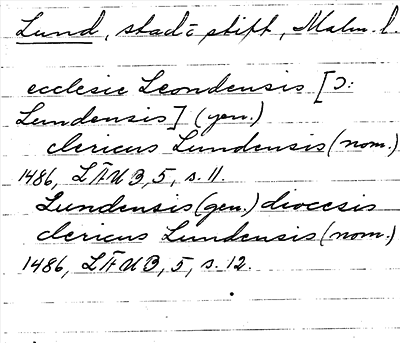 Lund, stad o stift, Malm. l.
ecclesie Leondensis [ɔ:
Lundensis] (gen.)
clericus Lundensis (nom.)
1486, LÄUB, 5, s. 11.
Lundensis (gen.) diocesis
clericus Lundensis (nom.)
1486, LÄUB, 5, s. 12.